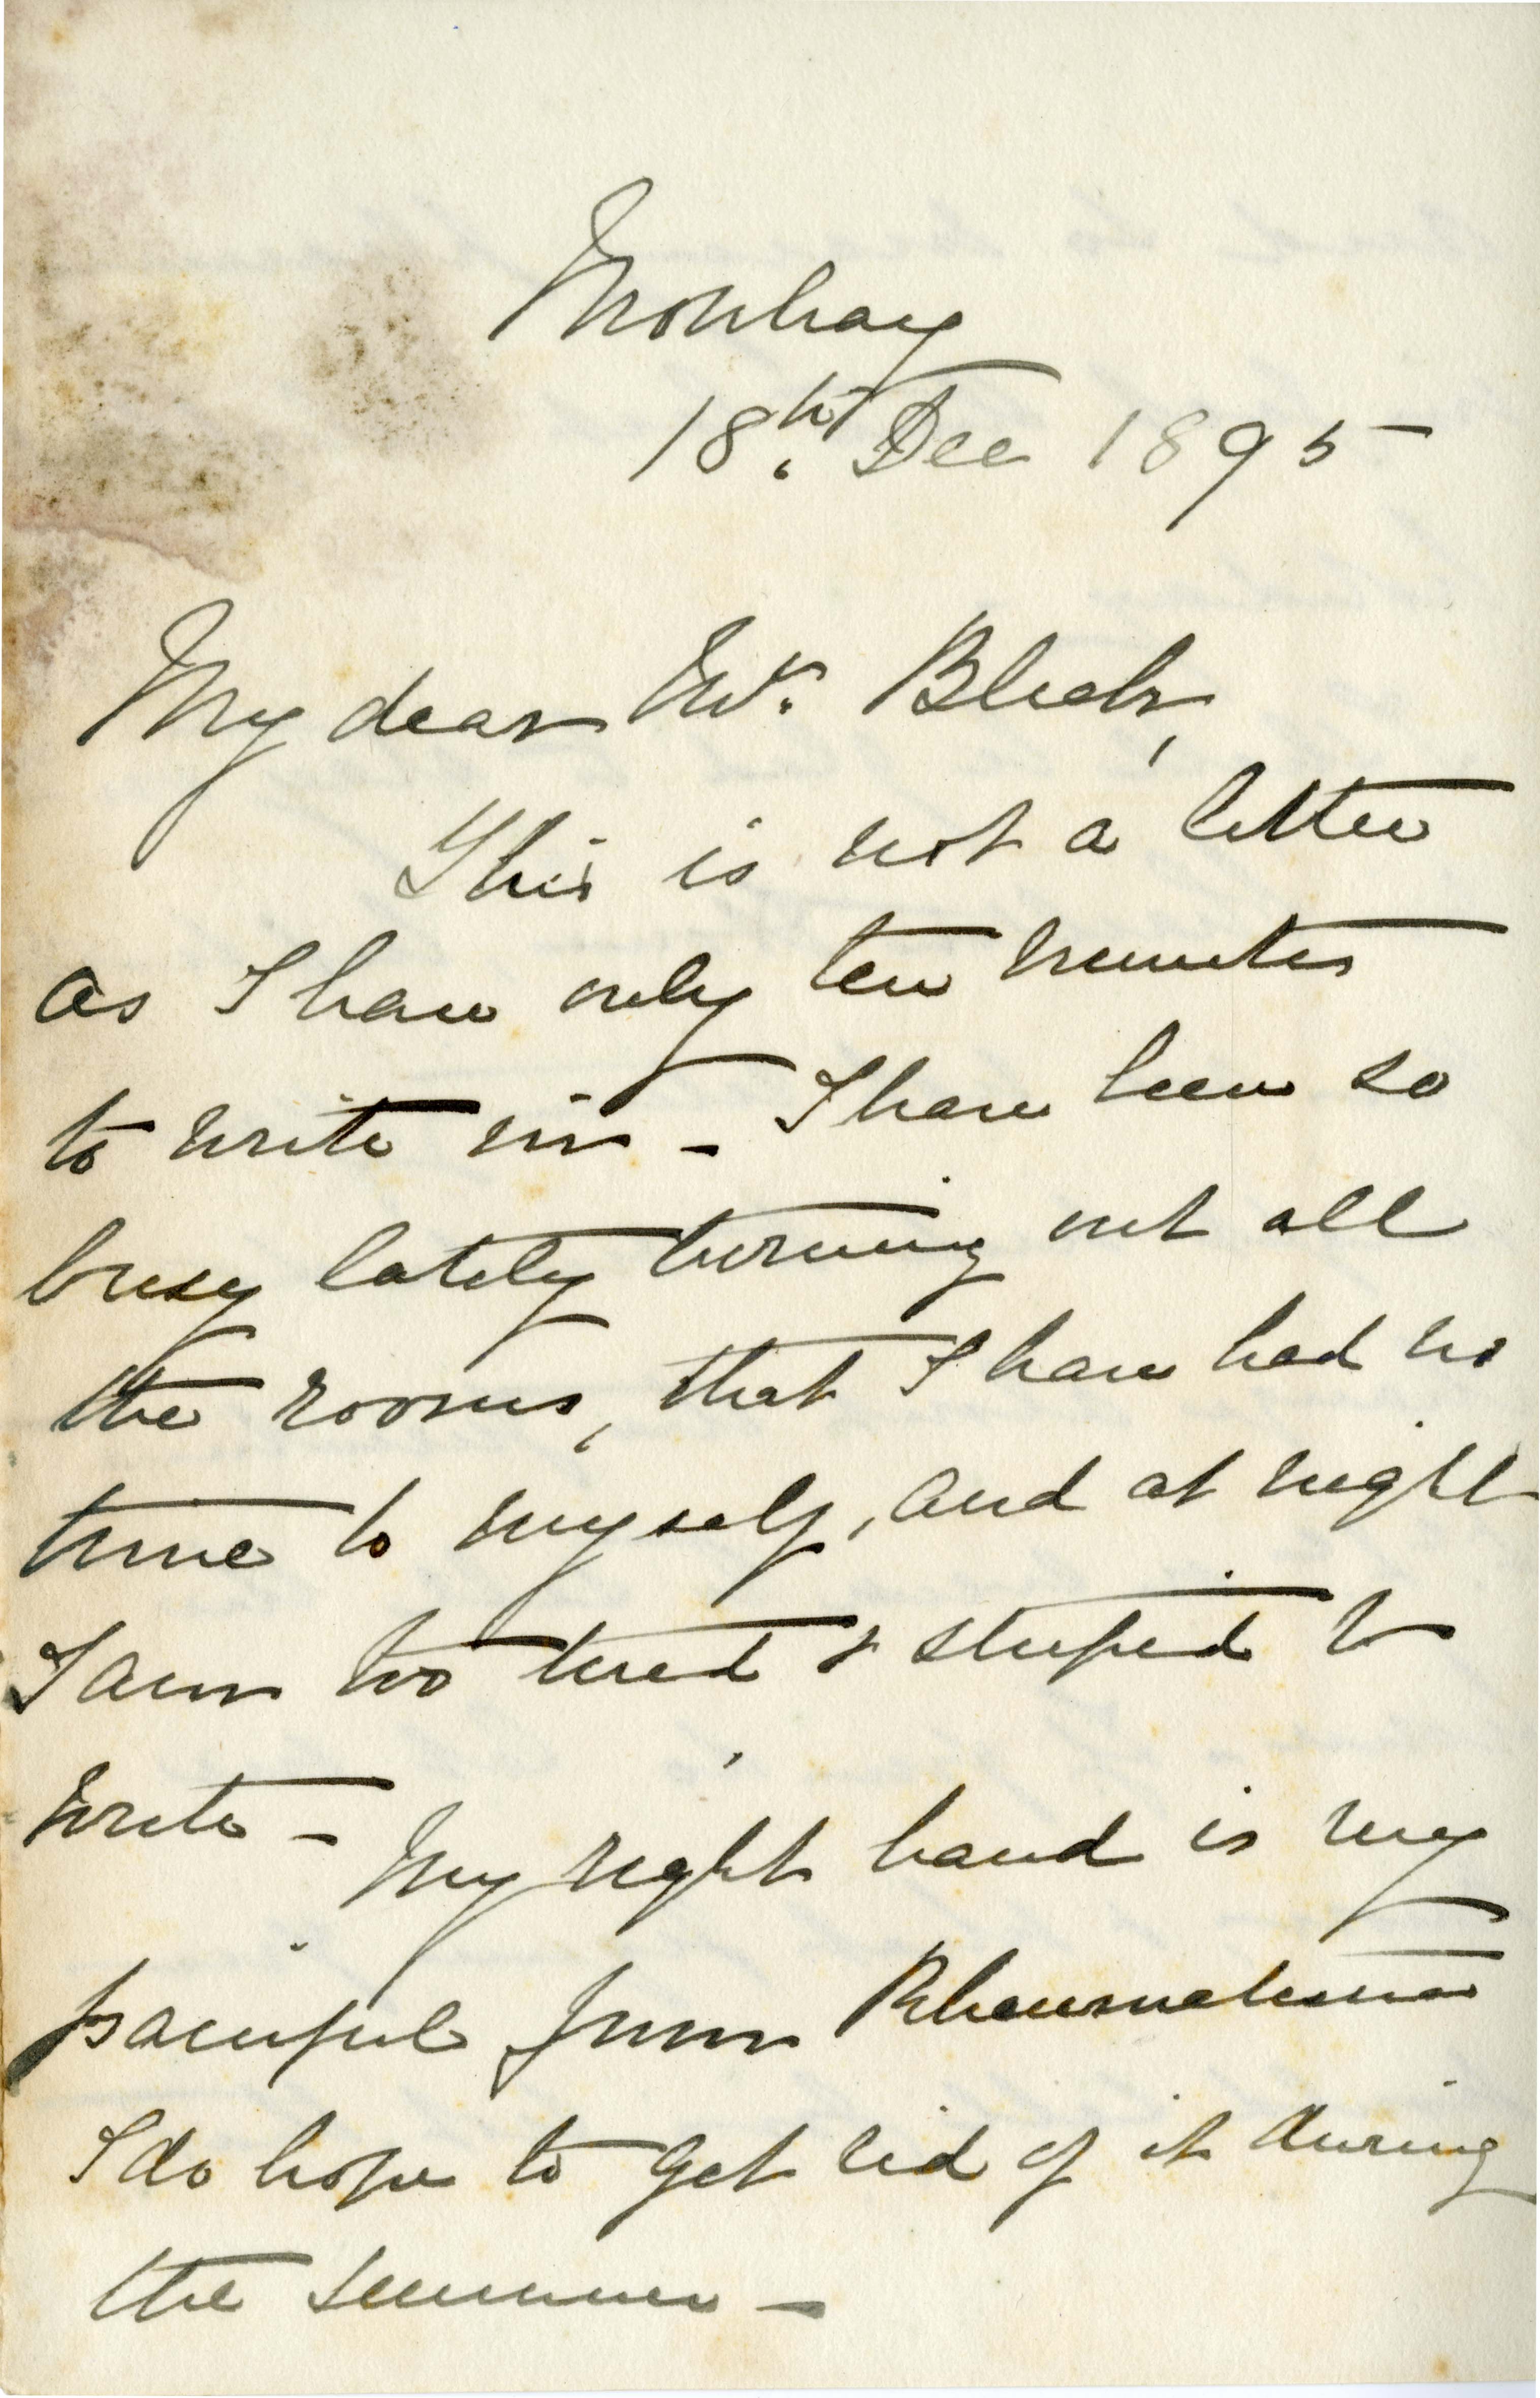 Mowbray
18th Dec 1895
My dear Mrs. Bleek,
This is not a letter
as I have only ten minutes
to write in - I have been so
busy lately turning out all
the rooms, that I have had no
time to myself, and at night
I am too tired & stupid to
write - My right hand is very
painful from Rheumatism
I do hope to get rid of it during
the summer -